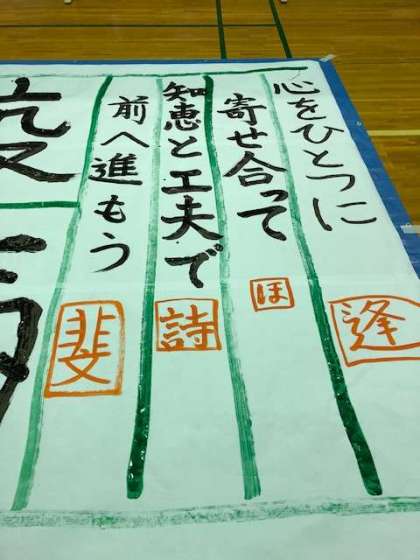 心をひとつに
逢
寄せ合って
ほ
知恵と工夫で
詩
前へ進もう
斐